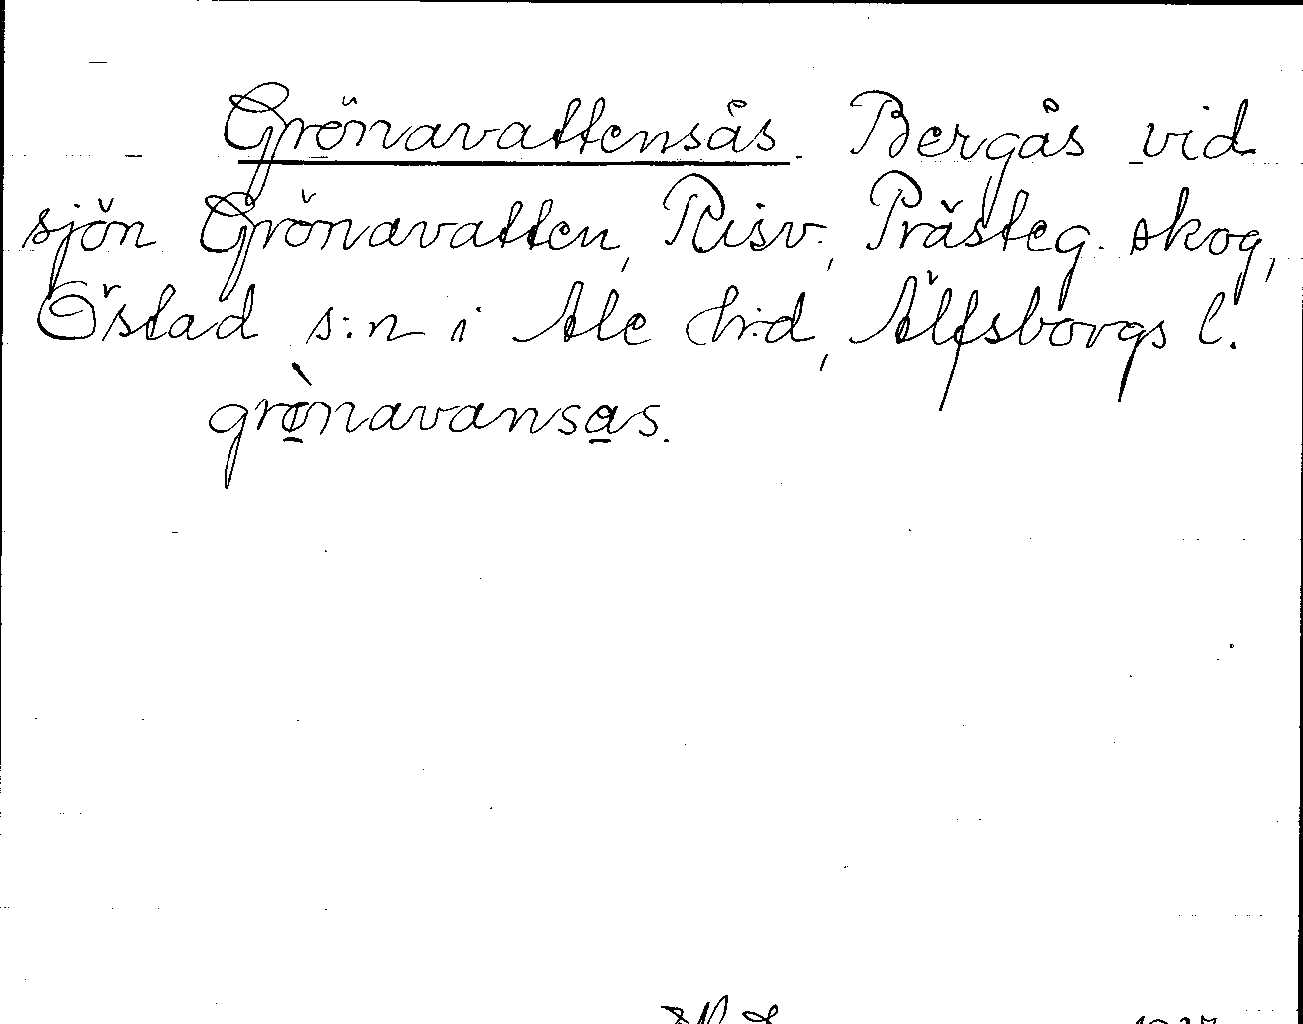 Grönavattensås. Bergås vid
sjön Grönavatten, Risv., Prästeg. skog,
Östad s:n i Ale hrd, Älfsborgs l.
grònavansas.